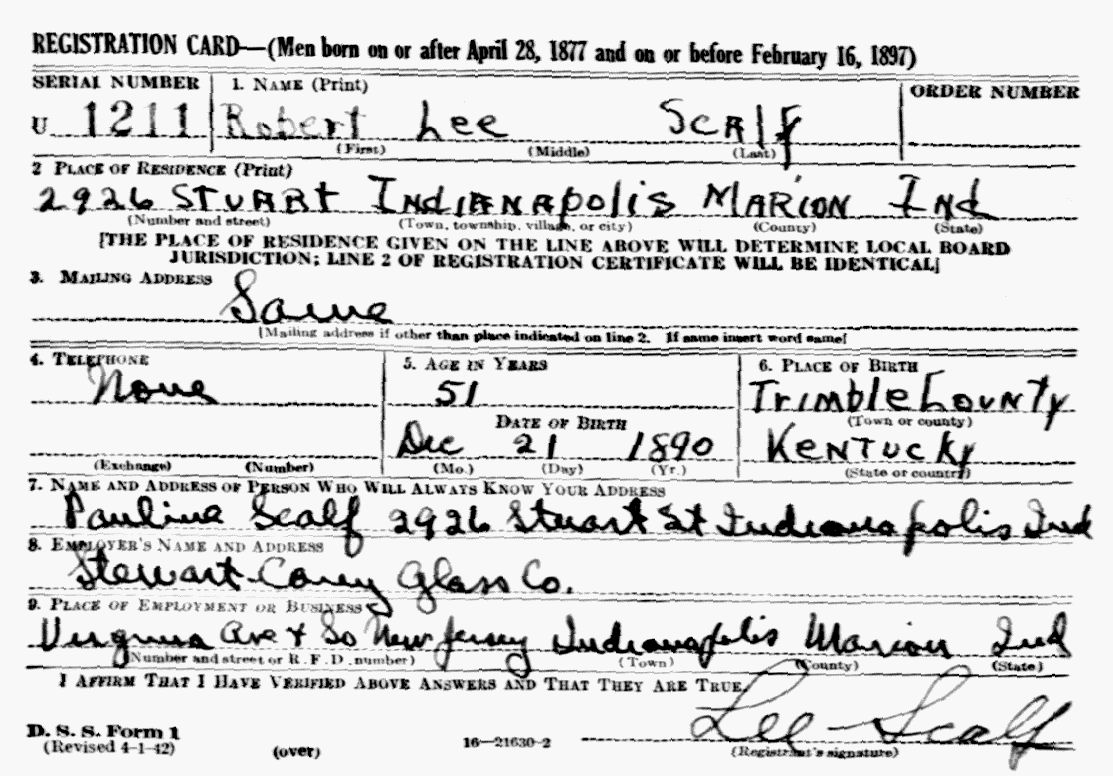 REGISTRATION CARD—(Men born on or after April 28, 1877 and on or before February 16, 1897)
SERIAL NUMBER 1. NAME (Print) ORDER NUMBER
U 1211 Robert Lee Scalf
(First) (Middle) (Last)
2 PLACE OF RESIDENCE (Print)
2926 STUART INDIANAPOLIS MARION IND
(Number and street) (Town, township, village, or city) (County) (State)
[THE PLACE OF RESIDENCE GIVEN ON THE LINE ABOVE WILL DETERMINE LOCAL BOARD
JURISDICTION; LINE 2 OF REGISTRATION CERTIFICATE WILL BE IDENTICAL]
3. MAILING ADDRESS
Same
[Mailing address if other than place indicated on line 2. If same insert word same]
4. TELEPHONE 5. AGE IN YEARS 6. PLACE OF BIRTH
None 51 Trimble County
DATE OF BIRTH (Town or county)
Dec 21 1890 KENTUCKY
(Exchange) (Number) (Mo.) (Day) (Yr.) (State or country)
7. NAME AND ADDRESS OF PERSON WHO WILL ALWAYS KNOW YOUR ADDRESS
Paulina Scalf 2926 Stuart St Indianapolis Ind
8. EMPLOYER'S NAME AND ADDRESS
Stewart-Carey Glass Co.
9. PLACE OF EMPLOYMENT OR BUSINESS
Virginia Ave + So New Jersey Indianapolis Marion Ind
(Number and street or R. F. D. number) (Town) (County) (State)
I AFFIRM THAT I HAVE VERIFIED ABOVE ANSWERS AND THAT THEY ARE TRUE.
Lee Scalf
D. S. S. Form 1
(Revised 4-1-42) (over) 16—21630-2 (Registrant's signature)